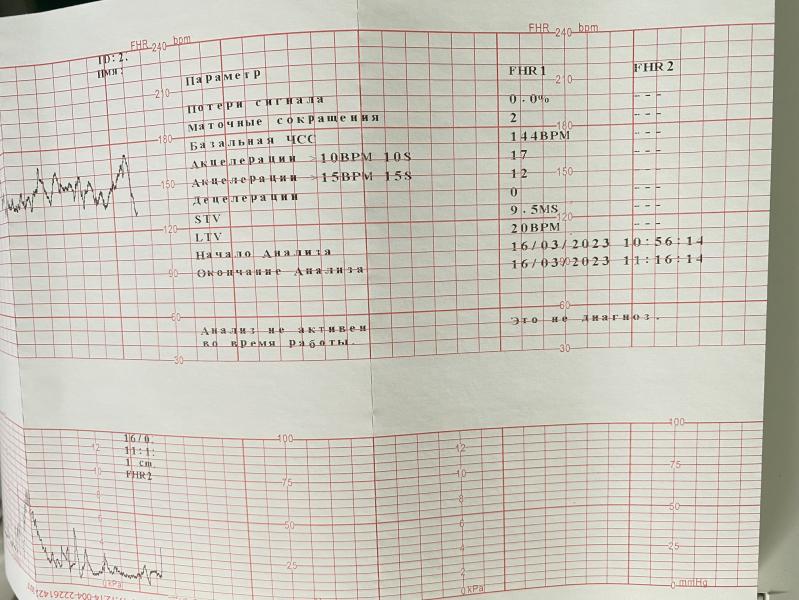 FHR 240 bpm
FHR 240 bpm
ID:2.
Имя:
Параметр FHR1 FHR2
210
210
Потери сигнала 0.0% ---
Маточные сокращения 2 ---
180
180
Базальная ЧСС 144BPM ---
Акцелерации >10BPM 10S 17 ---
150
150
Акцелерации >15BPM 15S 12 ---
Децелерации 0 ---
STV 9.5MS ---
120
120
LTV 20BPM ---
Начало Анализа 16/03/2023 10:56:14
Окончание Анализа 16/03/2023 11:16:14
90
90
60
60
Анализ не активен Это не диагноз.
во время работы.
30
30
16/0
11:1
1 cm
FHR2
12 100 12 100
10 75 10 75
8 8
6 50 6 50
4 25 4 25
2 2
0 kPa 0 kPa 0 mmHg